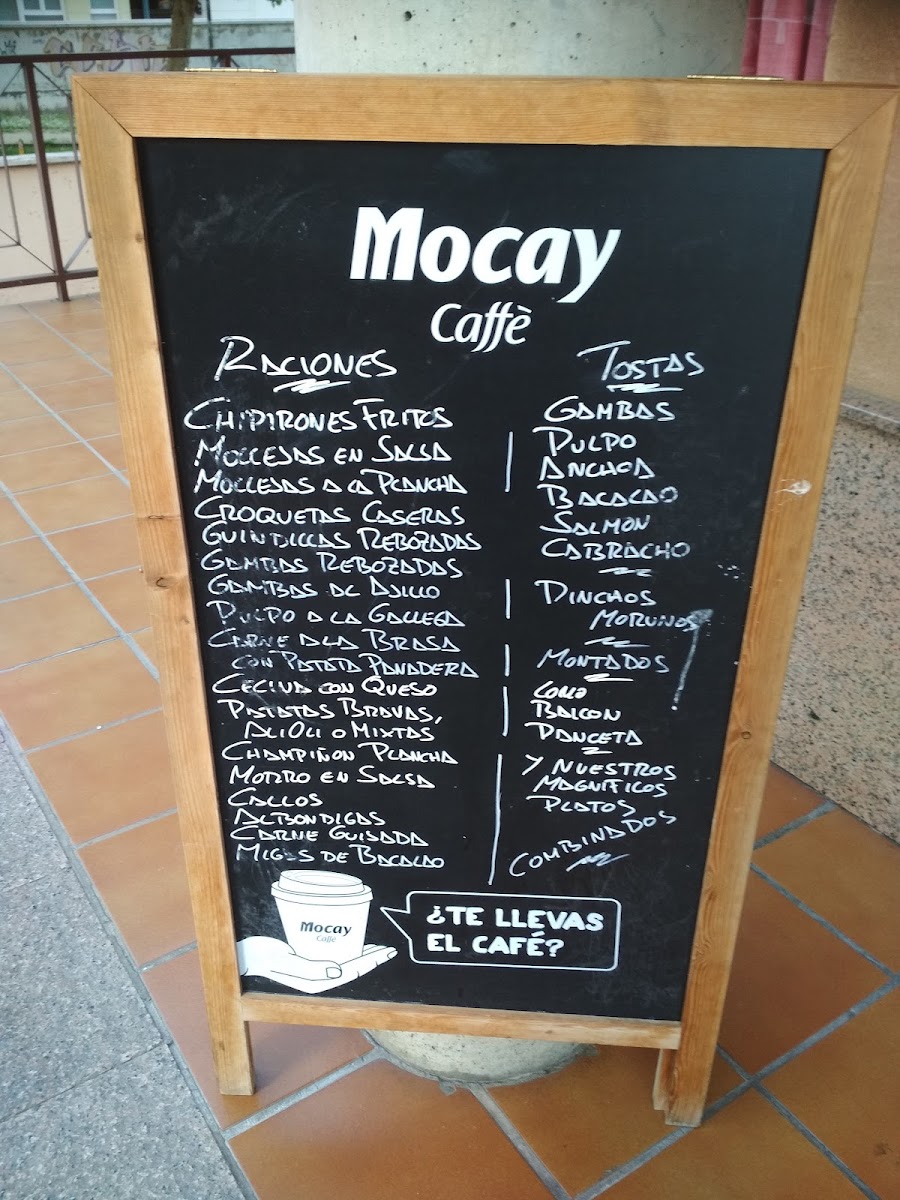 Mocay
Caffè
RACIONES
CHIPIRONES FRITOS
MOLLEJAS EN SALSA
MOLLEJAS A LA PLANCHA
CROQUETAS CASERAS
GUINDILLAS REBOZADAS
GAMBAS REBOZADAS
GAMBAS AL AJILLO
PULPO A LA GALLEGA
CARNE A LA BRASA
CON PATATA PANADERA
CECINA CON QUESO
PATATAS BRAVAS,
ALIOLI O MIXTAS
CHAMPIÑON PLANCHA
MORRO EN SALSA
CALLOS
ALBONDIGAS
CARNE GUISADA
MIGAS DE BACALAO
TOSTAS
GAMBAS
PULPO
ANCHOA
BACALAO
SALMON
CABRACHO
PINCHOS
MORUNOS
MONTADOS
LOMO
BAICON
PANCETA
Y NUESTROS
MAGNIFICOS
PLATOS
COMBINADOS
Mocay
Caffè
¿TE LLEVAS
EL CAFÉ?